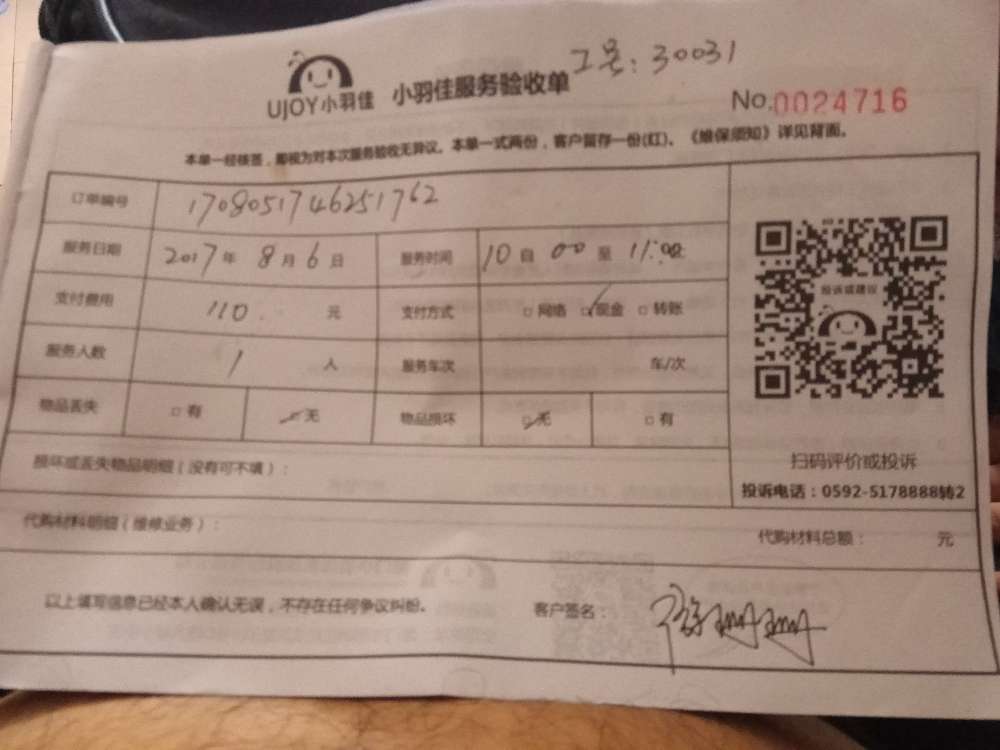 UJOY小羽佳 小羽佳服务验收单 工号：30031
No.0024716
本单一经核签，即视为对本次服务验收无异议。本单一式两份，客户留存一份(红)。《维保须知》详见背面。
订单编号 1708051746251762
服务日期 2017年8月6日 服务时间 10自00至11:00
支付费用 110 元 支付方式 □网络 ☑现金 □转账
服务人数 1 人 服务车次 车/次
物品丢失 □有 ☑无 物品损坏 ☑无 □有
投诉或建议
扫码评价或投诉
投诉电话：0592-5178888转2
损坏或丢失物品明细（没有可不填）：
代购材料明细（维修业务）： 代购材料总额： 元
以上填写信息已经本人确认无误，不存在任何争议纠纷。 客户签名： 珊珊